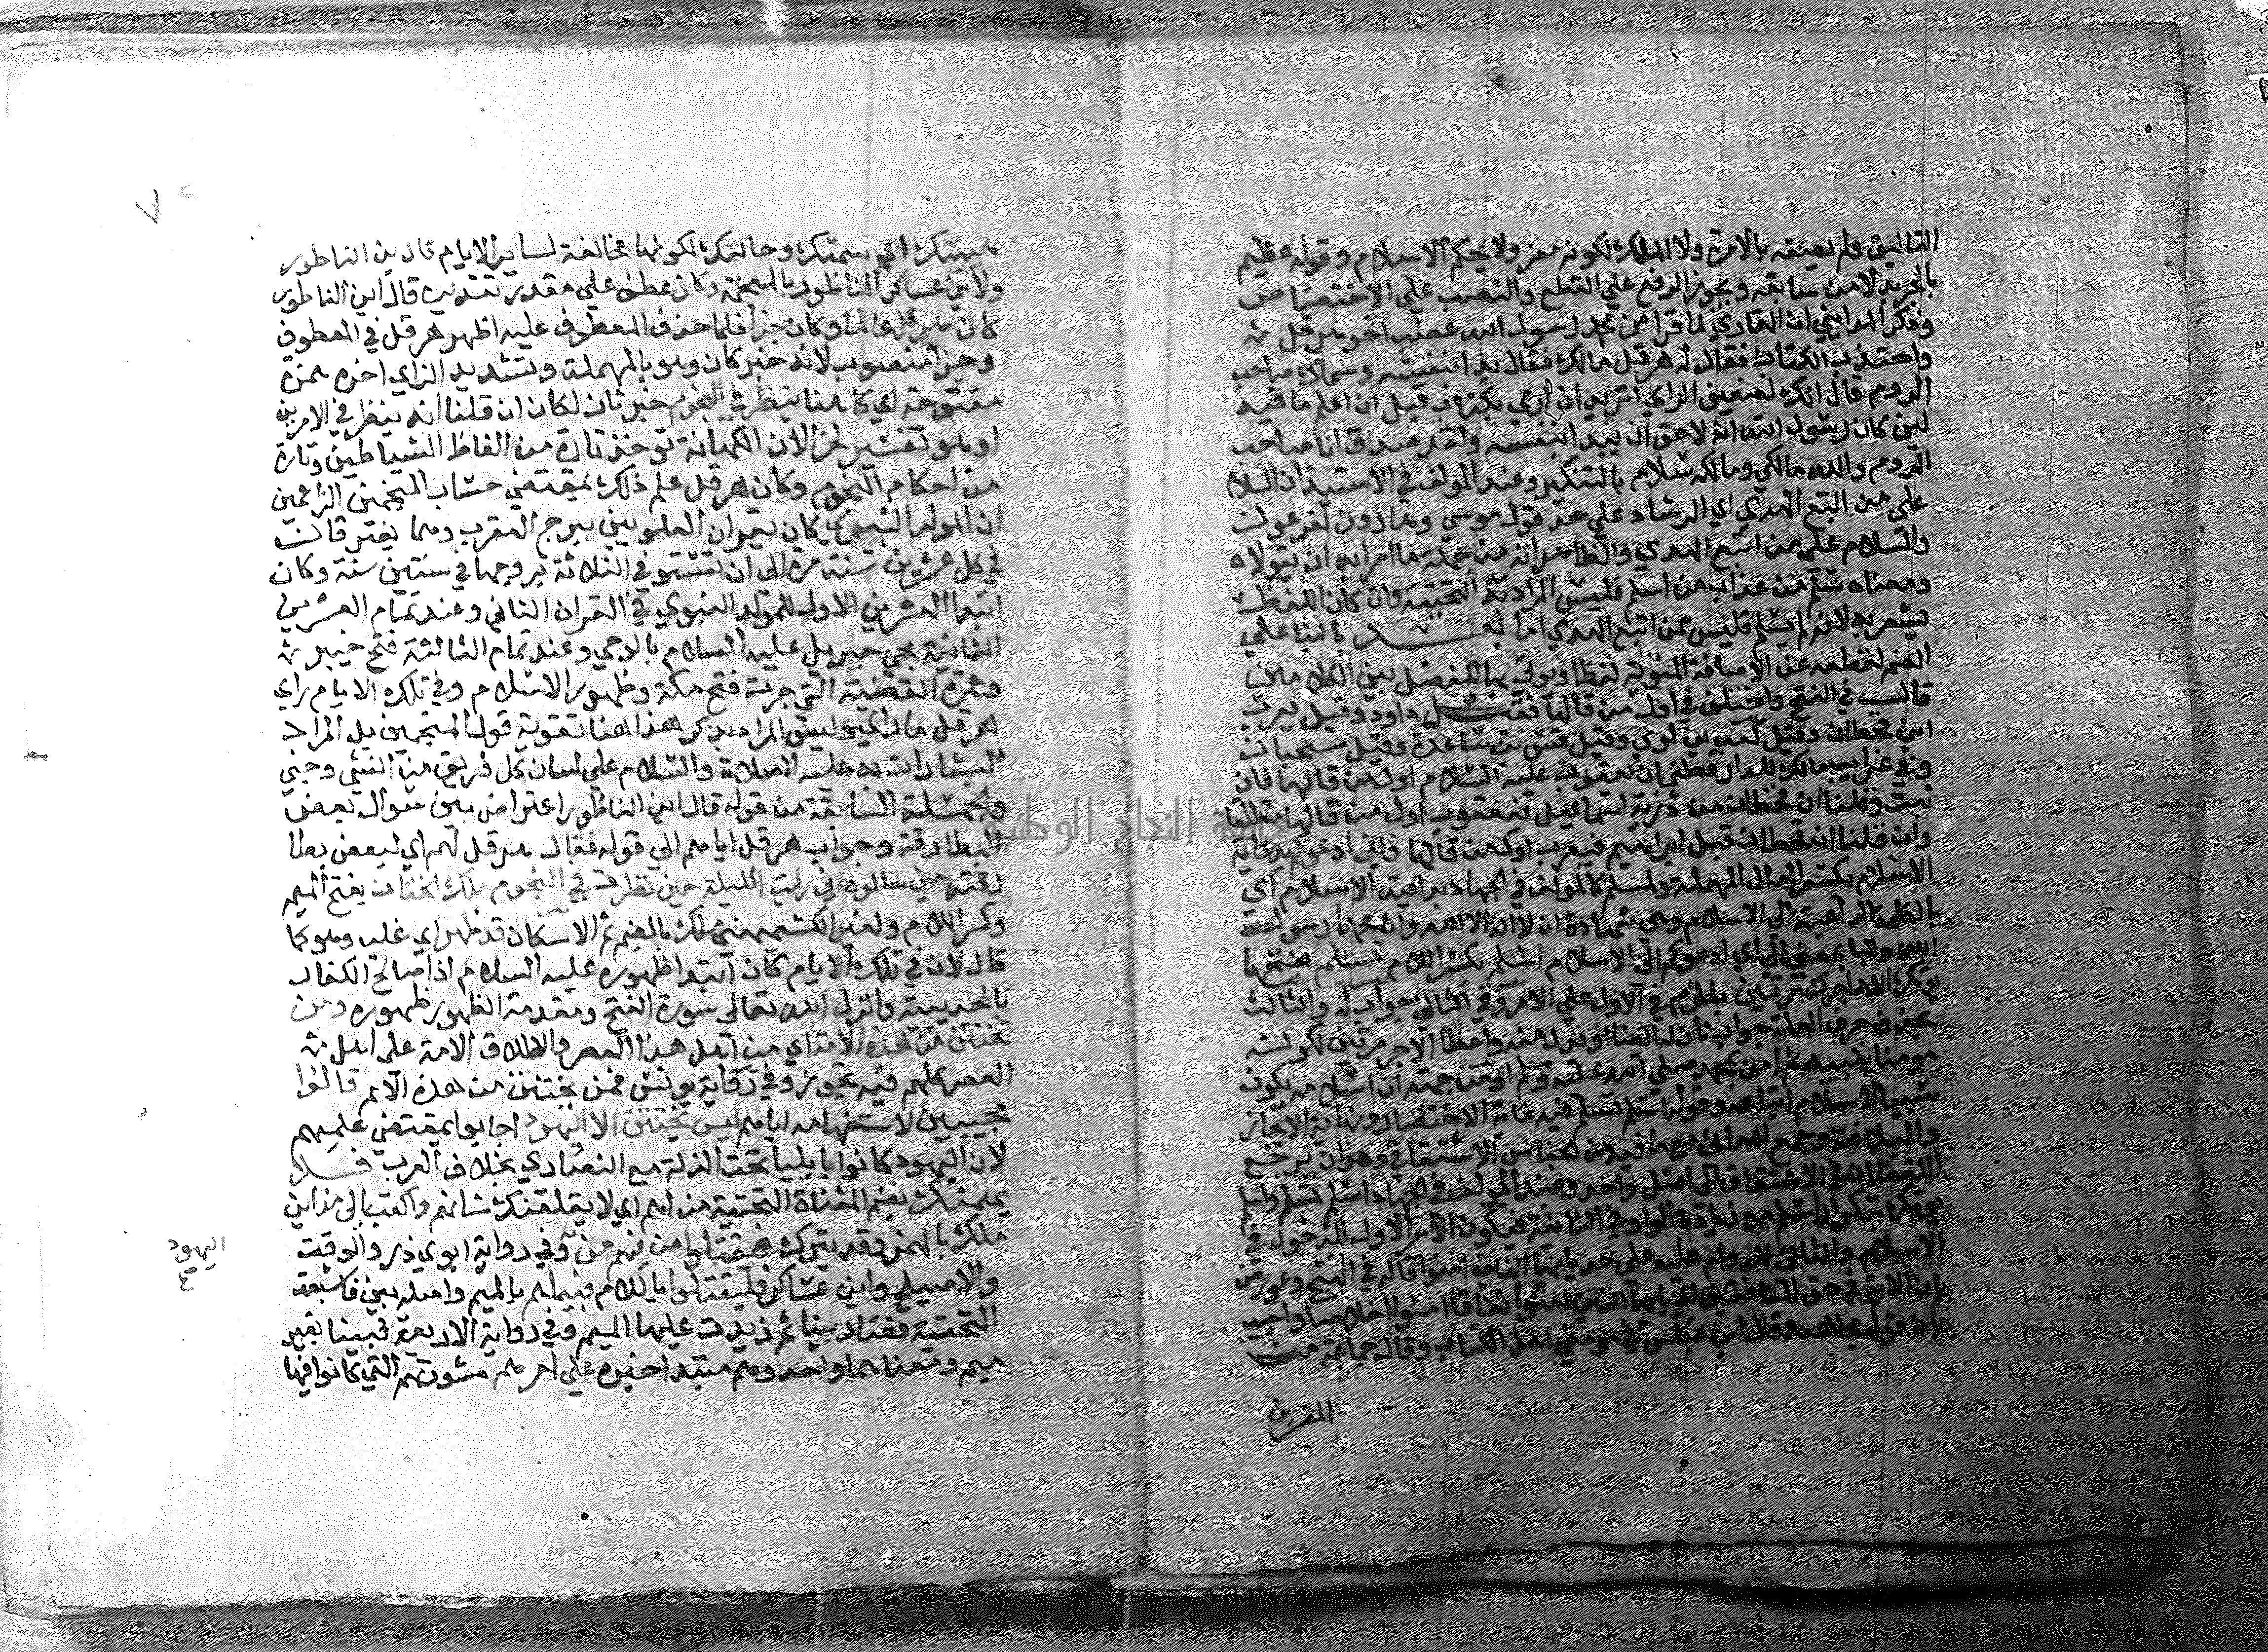 التاليق ولم يصفه بالامرة ولا الملك لكونه معزولا بحكم الاسلام وقوله عظيم
بالجر بدلا من سابقه ويجوز الرفع علي القطع والنصب علي الاختصاص
وذكر المدايني ان القاري لما قرا من محمد رسول الله غضب اخو هرقل
واجتذب الكتاب فقال له هرقل مالك فقال بدا بنفسه وسماك صاحب
الروم قال انك لضعيف الراي اتريد ان ارمي بكتاب قبل ان اعلم ما فيه
لين كان رسول الله انه لاحق ان يبدا بنفسه ولقد صدق انا صاحب
الروم والله مالكي ومالكه سلام بالتنكير وعند المولف في الاستيذان السلام
علي من اتبع الهدي اي الرشاد علي حد قول موسي وهارون لفرعون
والسلام علي من اتبع الهدي والظاهر انه من جملة ما امرا به ان يقولاه
ومعناه سلم من عذاب من اسلم فليس المراد به التحية وان كان اللفظ
يشعر به لانه لم يسلم فليس ممن اتبع الهدي اما بعد بالبنا علي
الضم لقطعه عن الاضافة المنوية لفظا ويوتي بها للفصل بين الكلامين
قال في الفتح واختلف في اول من قالها فقيل داود وقيل يعرب
ابن قحطان وقيل كعب بن لوي وقيل قس بن ساعدة وقيل سحبان
وفي غرايب مالك للدارقطني ان يعقوب عليه السلام اول من قالها فان
ثبت وقلنا ان قحطان من ذرية اسماعيل فيعقوب اول من قالها مطلقا
وان قلنا ان قحطان قبل ابراهيم فيعرب اول من قالها فاني ادعوك بدعاية
الاسلام بكسر الدال المهملة ولمسلم كالمولف في الجهاد بداعية الاسلام اي
بالكلمة الداعية الي الاسلام وهي شهادة ان لا اله الا الله وان محمدا رسول
الله والبا بمعني الي اي ادعوك الي الاسلام اسلم بكسر اللام تسلم بفتحها
يوتك الله اجرك مرتين بالجزم في الاول علي الامر وفي الثاني جواب له والثالث
بحذف حرف العلة جواب ثان له ايضا او بدل منه واعطا الاجر مرتين لكونه
مومنا بنبيه ثم امن بمحمد صلي الله عليه وسلم او من جهة ان اسلامه يكون
سببا لاسلام اتباعه وقوله اسلم تسلم فيه غاية الاختصار ونهاية الايجاز
والبلاغة وجمع المعاني مع ما فيه من الجناس الاشتقاقي وهو ان يرجع
اللفظان في الاشتقاق الي اصل واحد وعند المولف في الجهاد اسلم تسلم واسلم
يوتك بتكرار اسلم مع زيادة الواو في الثانية فيكون الامر الاول للدخول في
الاسلام والثاني للدوام عليه علي حد يايها الذين امنوا قاله في الفتح وعورض
بان الاية في حق المنافقين اي يايها الذين امنوا نفاقا امنوا اخلاصا واجيب
بان قول مجاهد وقال ابن عباس في مومني اهل الكتاب وقال جماعة من
المفسرين
هيئتك اي سمتك وحالتك لكونها مخالفة لساير الايام قال ابن الناطور
ولابن عساكر الناظور بالمعجمة وكان عطف علي مقدر تقديره قال ابن الناطور
كان هرقل عالما وكان حزا فلما حذف المعطوف عليه اظهر هرقل في المعطوف
وحزا منصوب لانه خبر كان وهو بالمهملة وتشديد الزاي اخره همزة
منونة اي كاهنا ينظر في النجوم خبر ثان لكان ان قلنا انه ينظر في الامرين
او هو تفسير لحزا لان الكهانة توخذ تارة من الفاظ الشياطين وتارة
من احكام النجوم وكان هرقل علم ذلك بمقتضي حساب المنجمين الزاعمين
ان المولد النبوي كان بقران العلويين ببرج العقرب وهما يقترنان
في كل عشرين سنة مرة الي ان تستوفي الثلاثة بروجها في ستين سنة وكان
ابتدا العشرين الاولي للمولد النبوي في القران الثاني وعند تمام العشرين
الثانية مجي جبريل عليه السلام بالوحي وعند تمام الثالثة فتح خيبر
وعمرة القضية التي جرت فتح مكة وظهور الاسلام وفي تلك الايام راي
هرقل ما راي وليس المراد بذكر هذا هنا تقوية قول المنجمين بل المراد
البشارات به عليه الصلاة والسلام علي لسان كل فريق من انسي وجني
والجملة السابقة من قوله قال ابن الناطور اعتراض بين سوال بعض
البطارقة وجواب هرقل اياهم الي قوله فقال هرقل لهم اي لبعض بطا
رقته حين سالوه اني رايت الليلة حين نظرت في النجوم ملك الختان بفتح الميم
وكسر اللام ولغير الكشميهني ملك بالضم ثم الاسكان قد ظهر اي غلب وهو كما
قال لان في تلك الايام كان ابتدا ظهوره عليه السلام اذ صالح الكفار
بالحديبية وانزل الله تعالي سورة الفتح ومقدمة الظهور ظهور فمن
يختتن من هذه الامة اي من اهل هذا العصر واطلاق الامة علي اهل
العصر كلهم فيه تجوز وفي رواية يونس فمن يختتن من هذه الامم قالوا
مجيبين لاستفهامه اياهم ليس يختتن الا اليهود اجابوا بمقتضي علمهم
لان اليهود كانوا بايليا تحت الذلة مع النصاري بخلاف العرب فلا
يهمنك بضم المثناة التحتية من اهم اي لا يقلقنك شانهم واكتب الي مداين
ملكك بالهمز وقد يترك فيقتلوا من فيهم من اليهود وفي رواية ابوي ذر والوقت
والاصيلي وابن عساكر فليقتلوا باللام فبينما هم بالميم واصله بين فاشبعت
التحتية فصار بينا ثم زيدت عليها الميم وفي رواية الاربعة فبينا بغير
ميم ومعناهما واحد وهم مبتدا خبره علي امرهم مشورتهم التي كانوا فيها